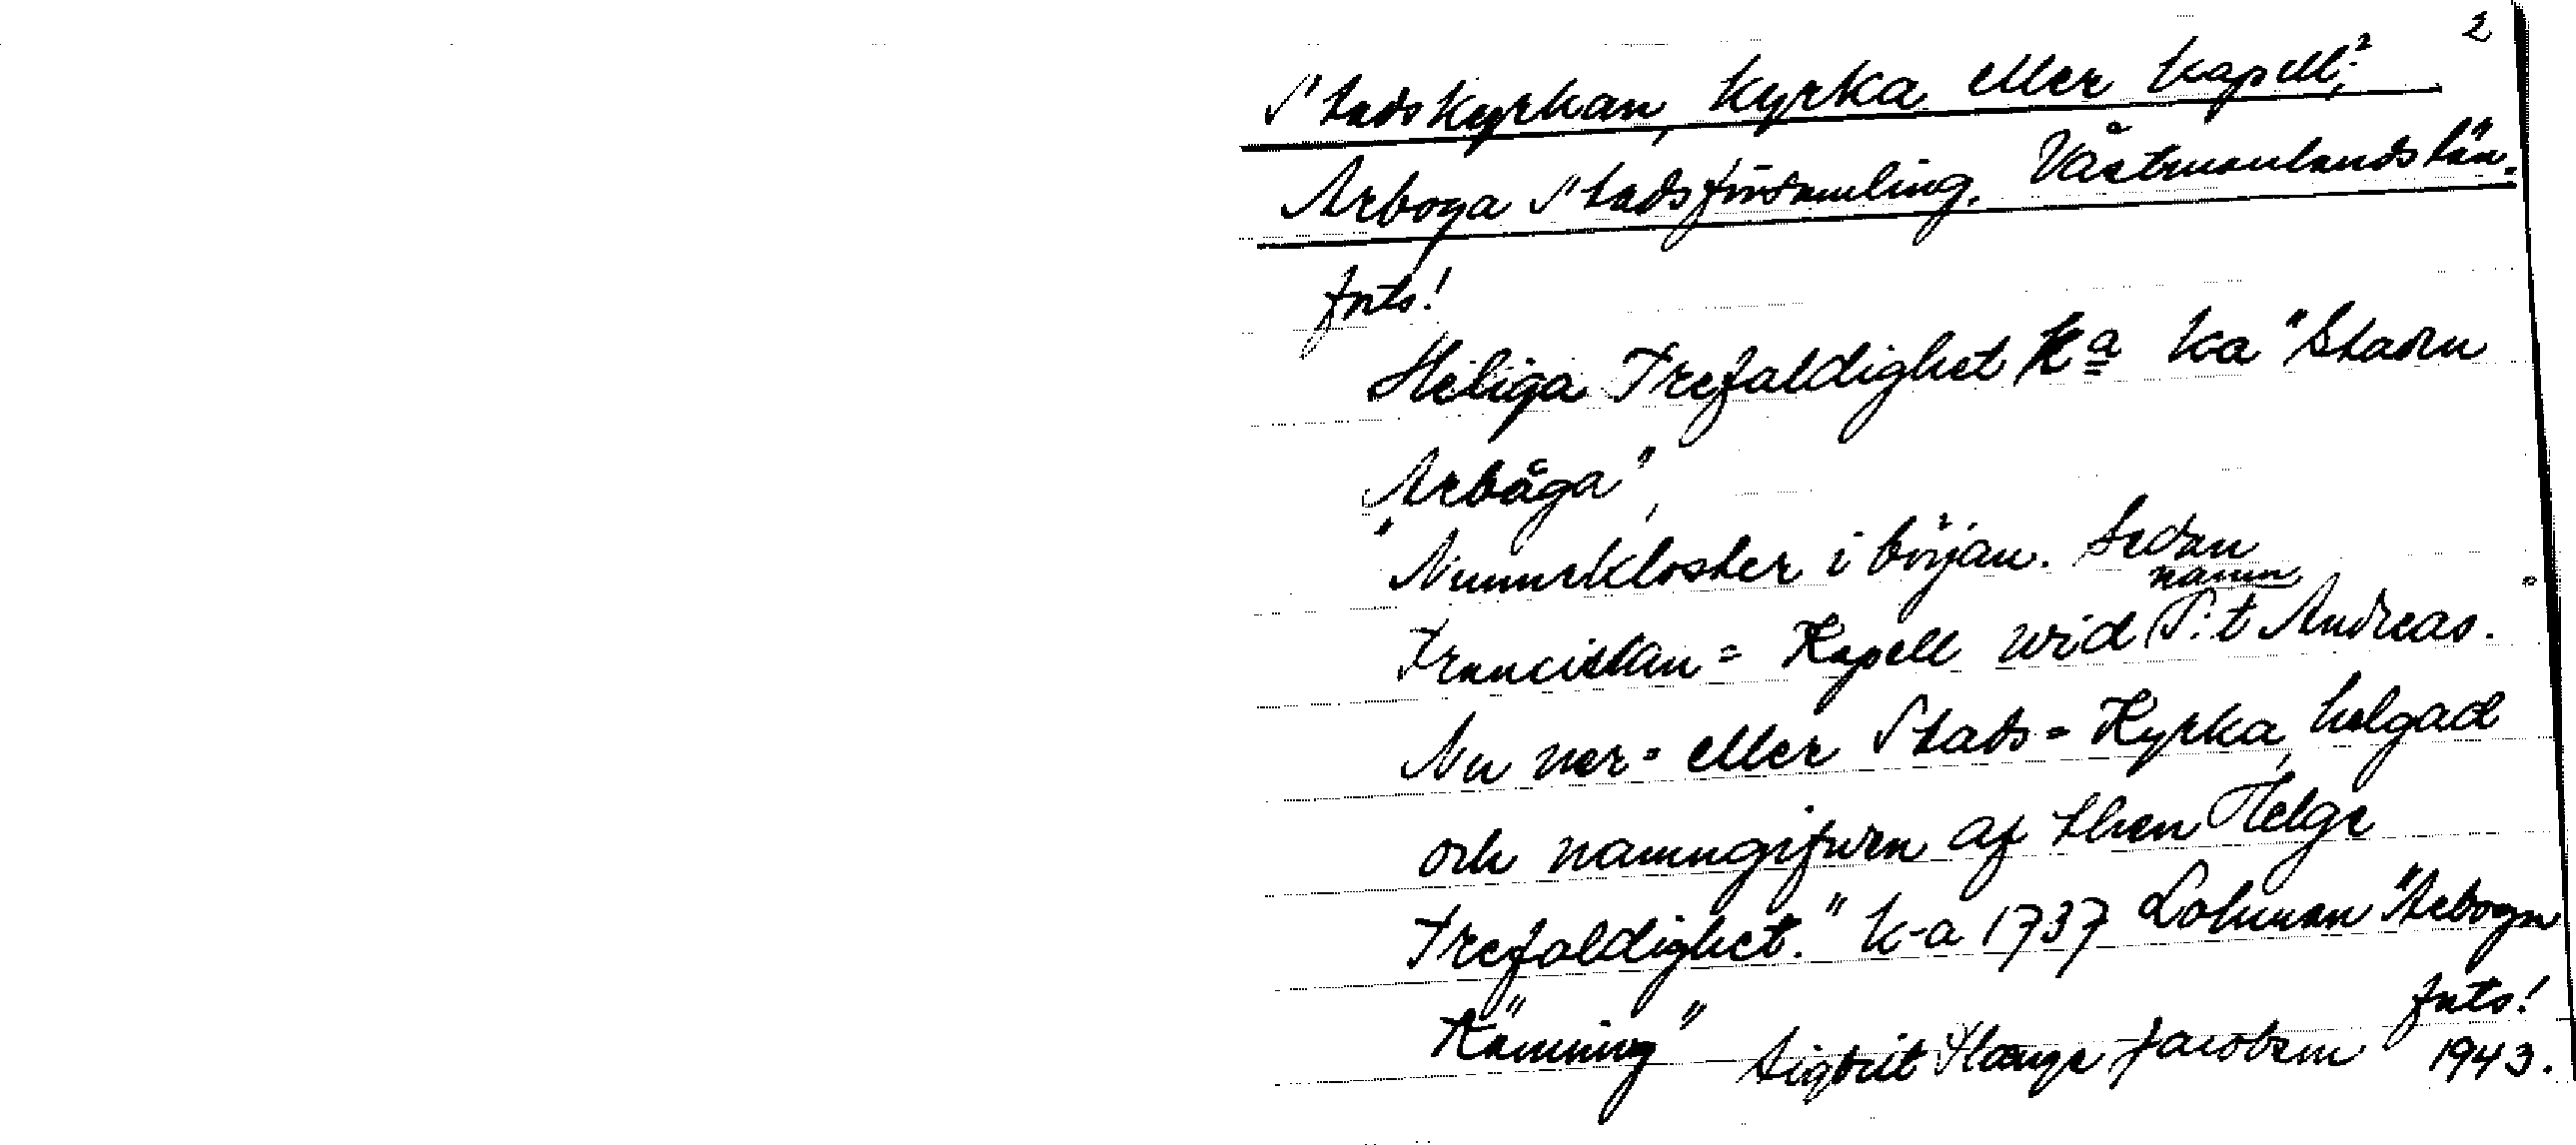 2
Stadskyrkan, Kyrka eller kapell?,
Arboga Stadsförsamling. Västmanlands län.
forts!
Heliga Trefaldighet Ka ka "Staden
Arbåga",
"Nunnekloster i början. Sedan
namn
Franciskan = Kapell wid S:t Andreas."
Nu ner = eller Stads = Kyrka, helgad
och namngifwen af then Helge
Trefaldighet." k-a 1737 Lohman "Arboga
Känning"
forts!
Sigbrit Plænge Jacobsen 1943.